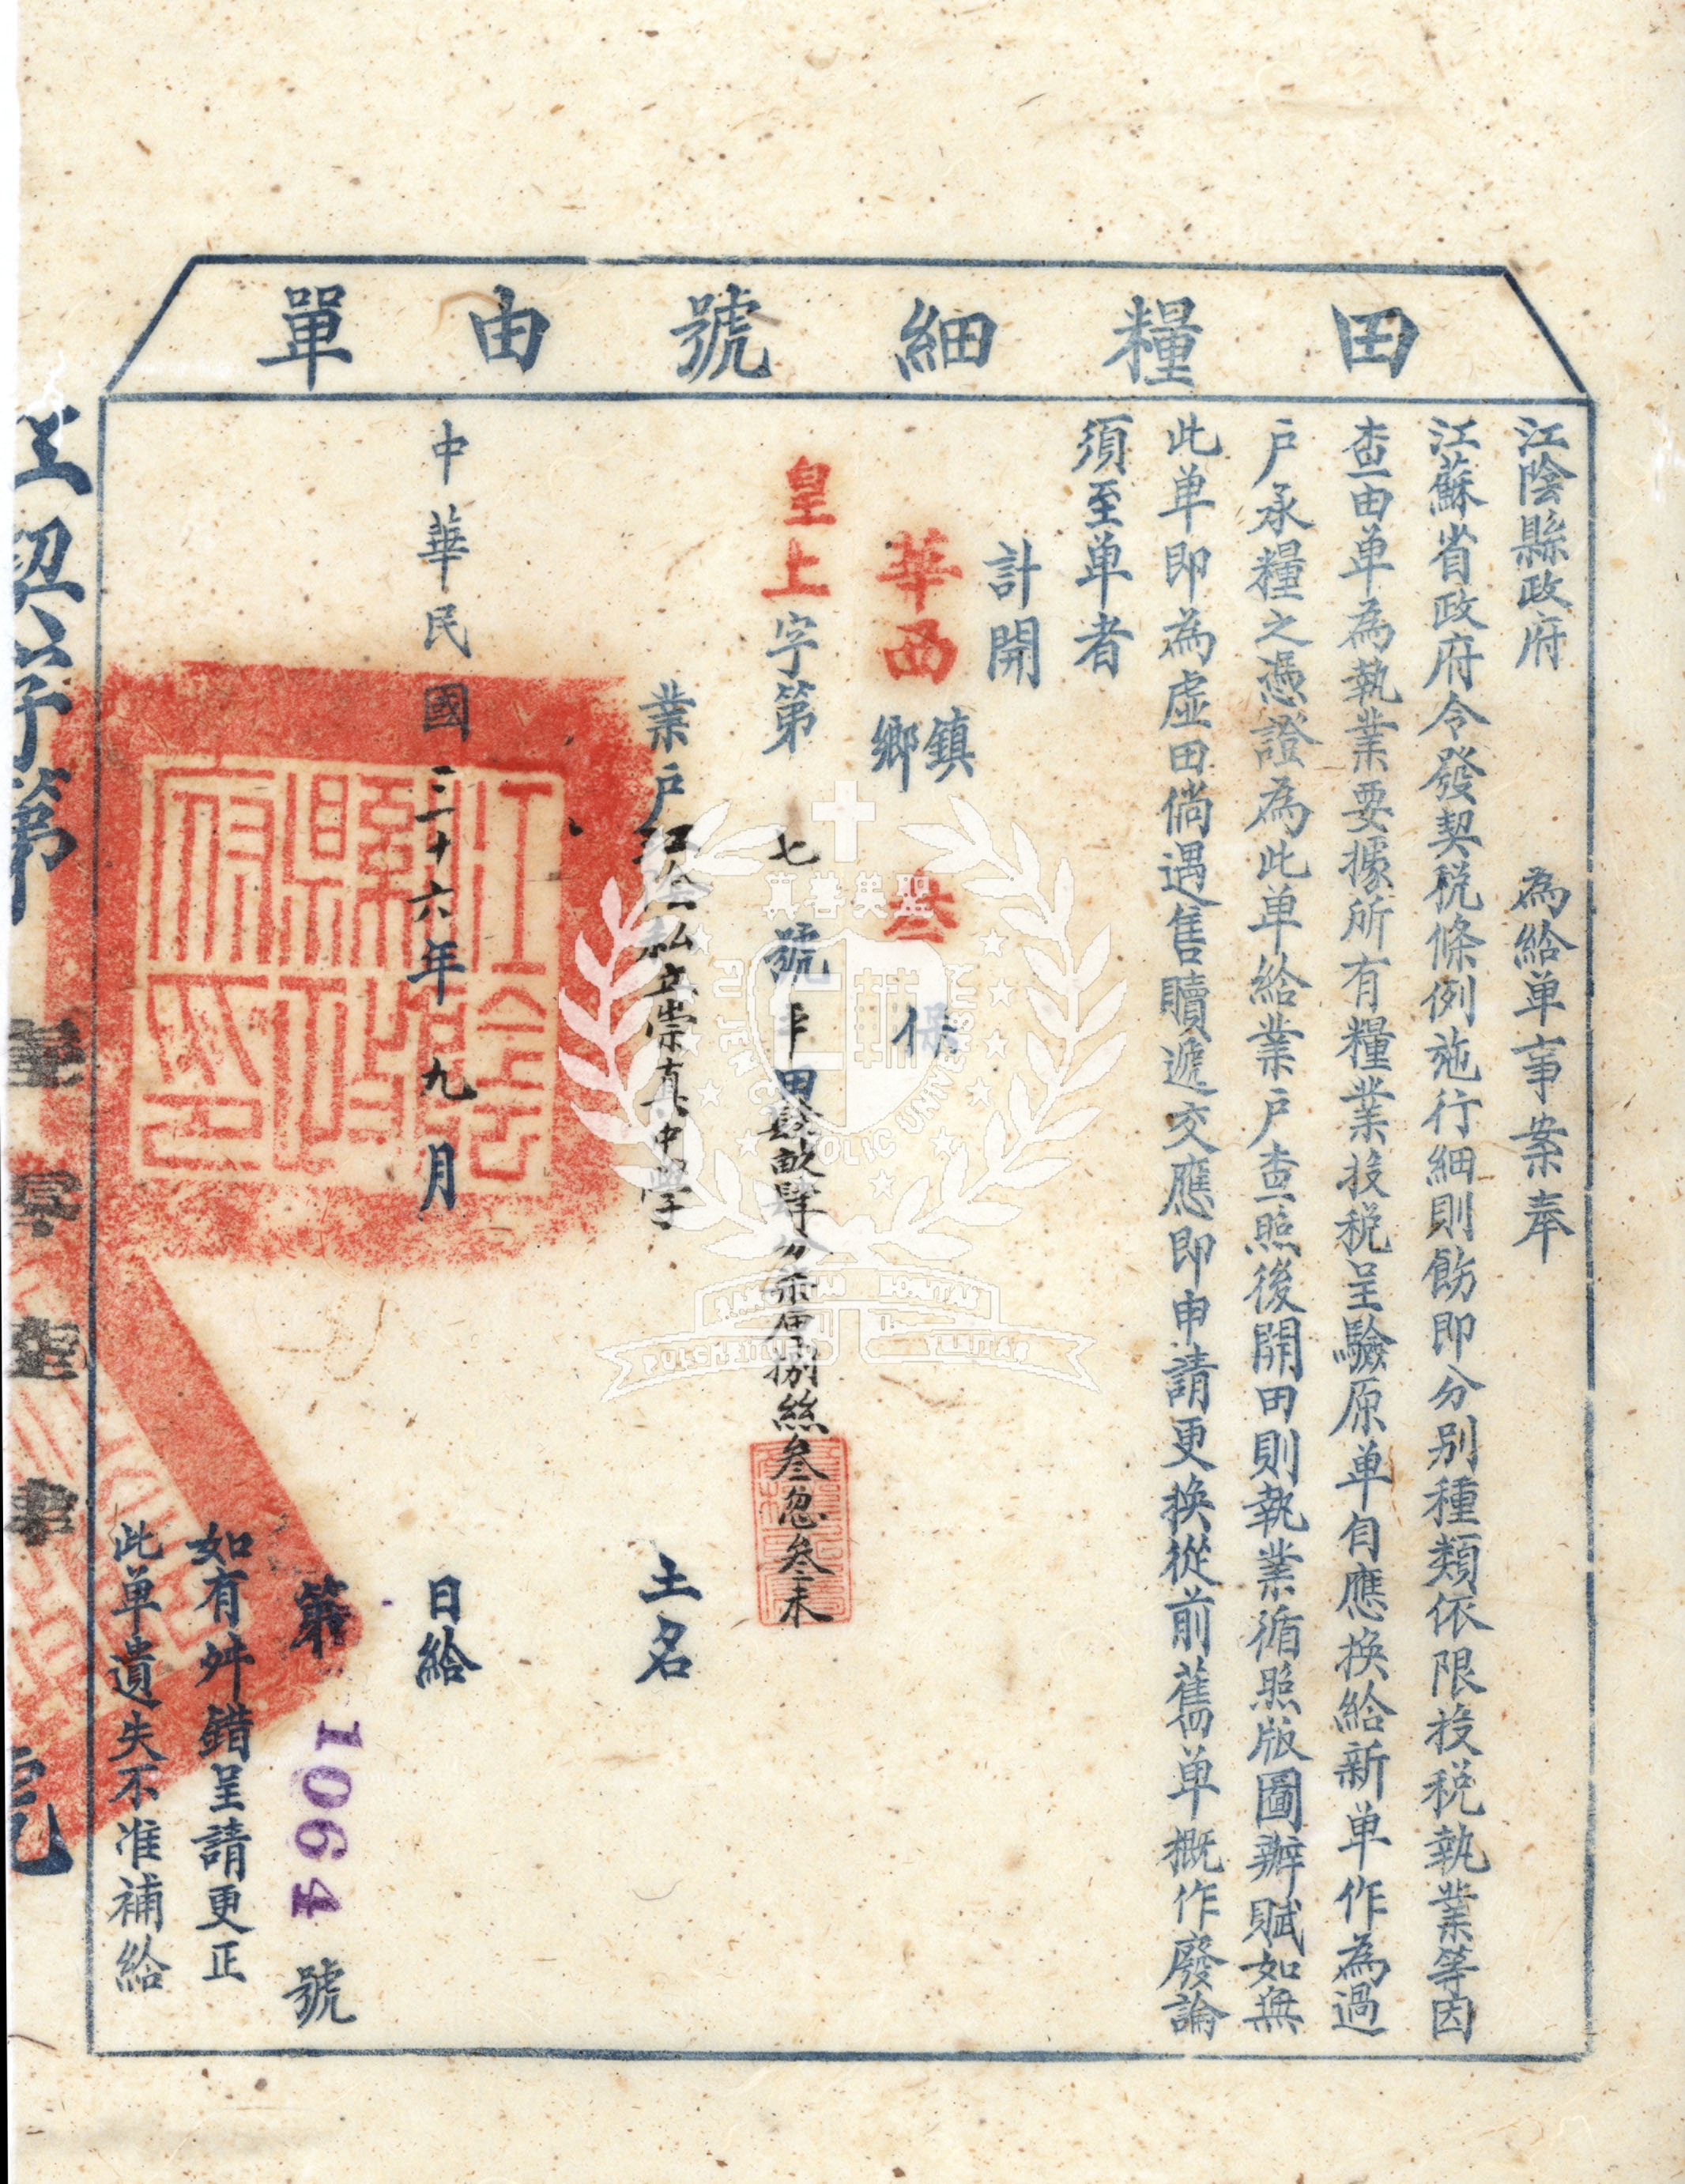 田糧細號由單
江陰縣政府 為給单事案奉
江蘇省政府令發契稅條例施行細則飭即分別種類依限投稅執業等因
查由单為執業要據所有糧業投稅呈驗原单自應換給新单作為過
戶承糧之憑證為此单給業戶查照後開田則執業循照版圖辦賦如無
此单即為虛田倘遇售贖遞交應即申請更換從前舊单概作廢論
須至单者
計開
華西 鎮鄉 叁 保
皇上字第 七 號 平田 畝肆分柒厘捌絲叁忽叁末
業戶 江陰私立崇真中學 土名
中華民國三十六年九月 日給
第 1064 號
如有舛錯呈請更正
此单遺失不准補給
江陰縣政府印
聖美善真
FU JEN CATHOLIC UNIVERSITY